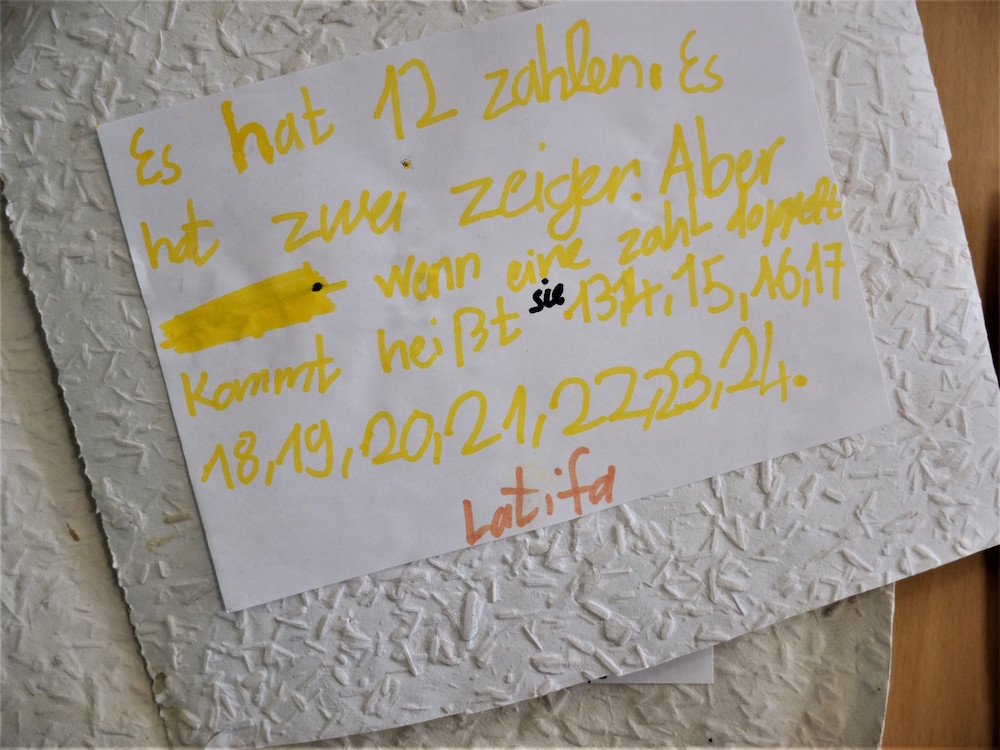 Es hat 12 zahlen. Es
hat zwei zeiger. Aber
wenn eine zahl doppelt
kommt heißt sie 13,14,15,16,17
18,19,20,21,22,23,24.
Latifa